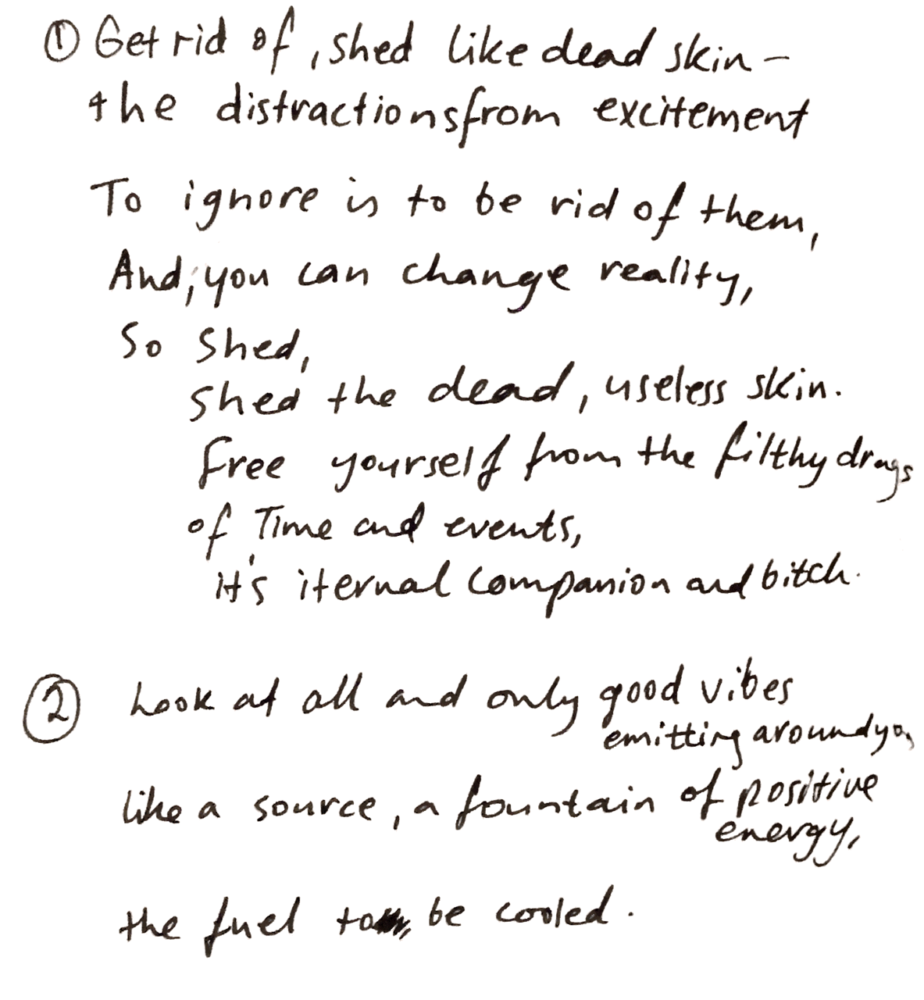 ① Get rid of, shed like dead skin –
the distractions from excitement
To ignore is to be rid of them,
And, you can change reality,
So shed,
shed the dead, useless skin.
free yourself from the filthy drags
of Time and events,
it's iternal companion and bitch.
② Look at all and only good vibes
emitting around you
like a source, a fountain of positive
energy,
the fuel to be cooled.